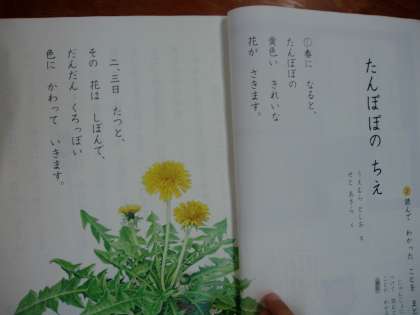 たんぽぽの ちえ
うえむら としお さく
①春に なると、
たんぽぽの
黄色い きれいな
花が さきます。
二、三日 たつと、
その 花は しぼんで、
だんだん くろっぽい
色に かわって いきます。